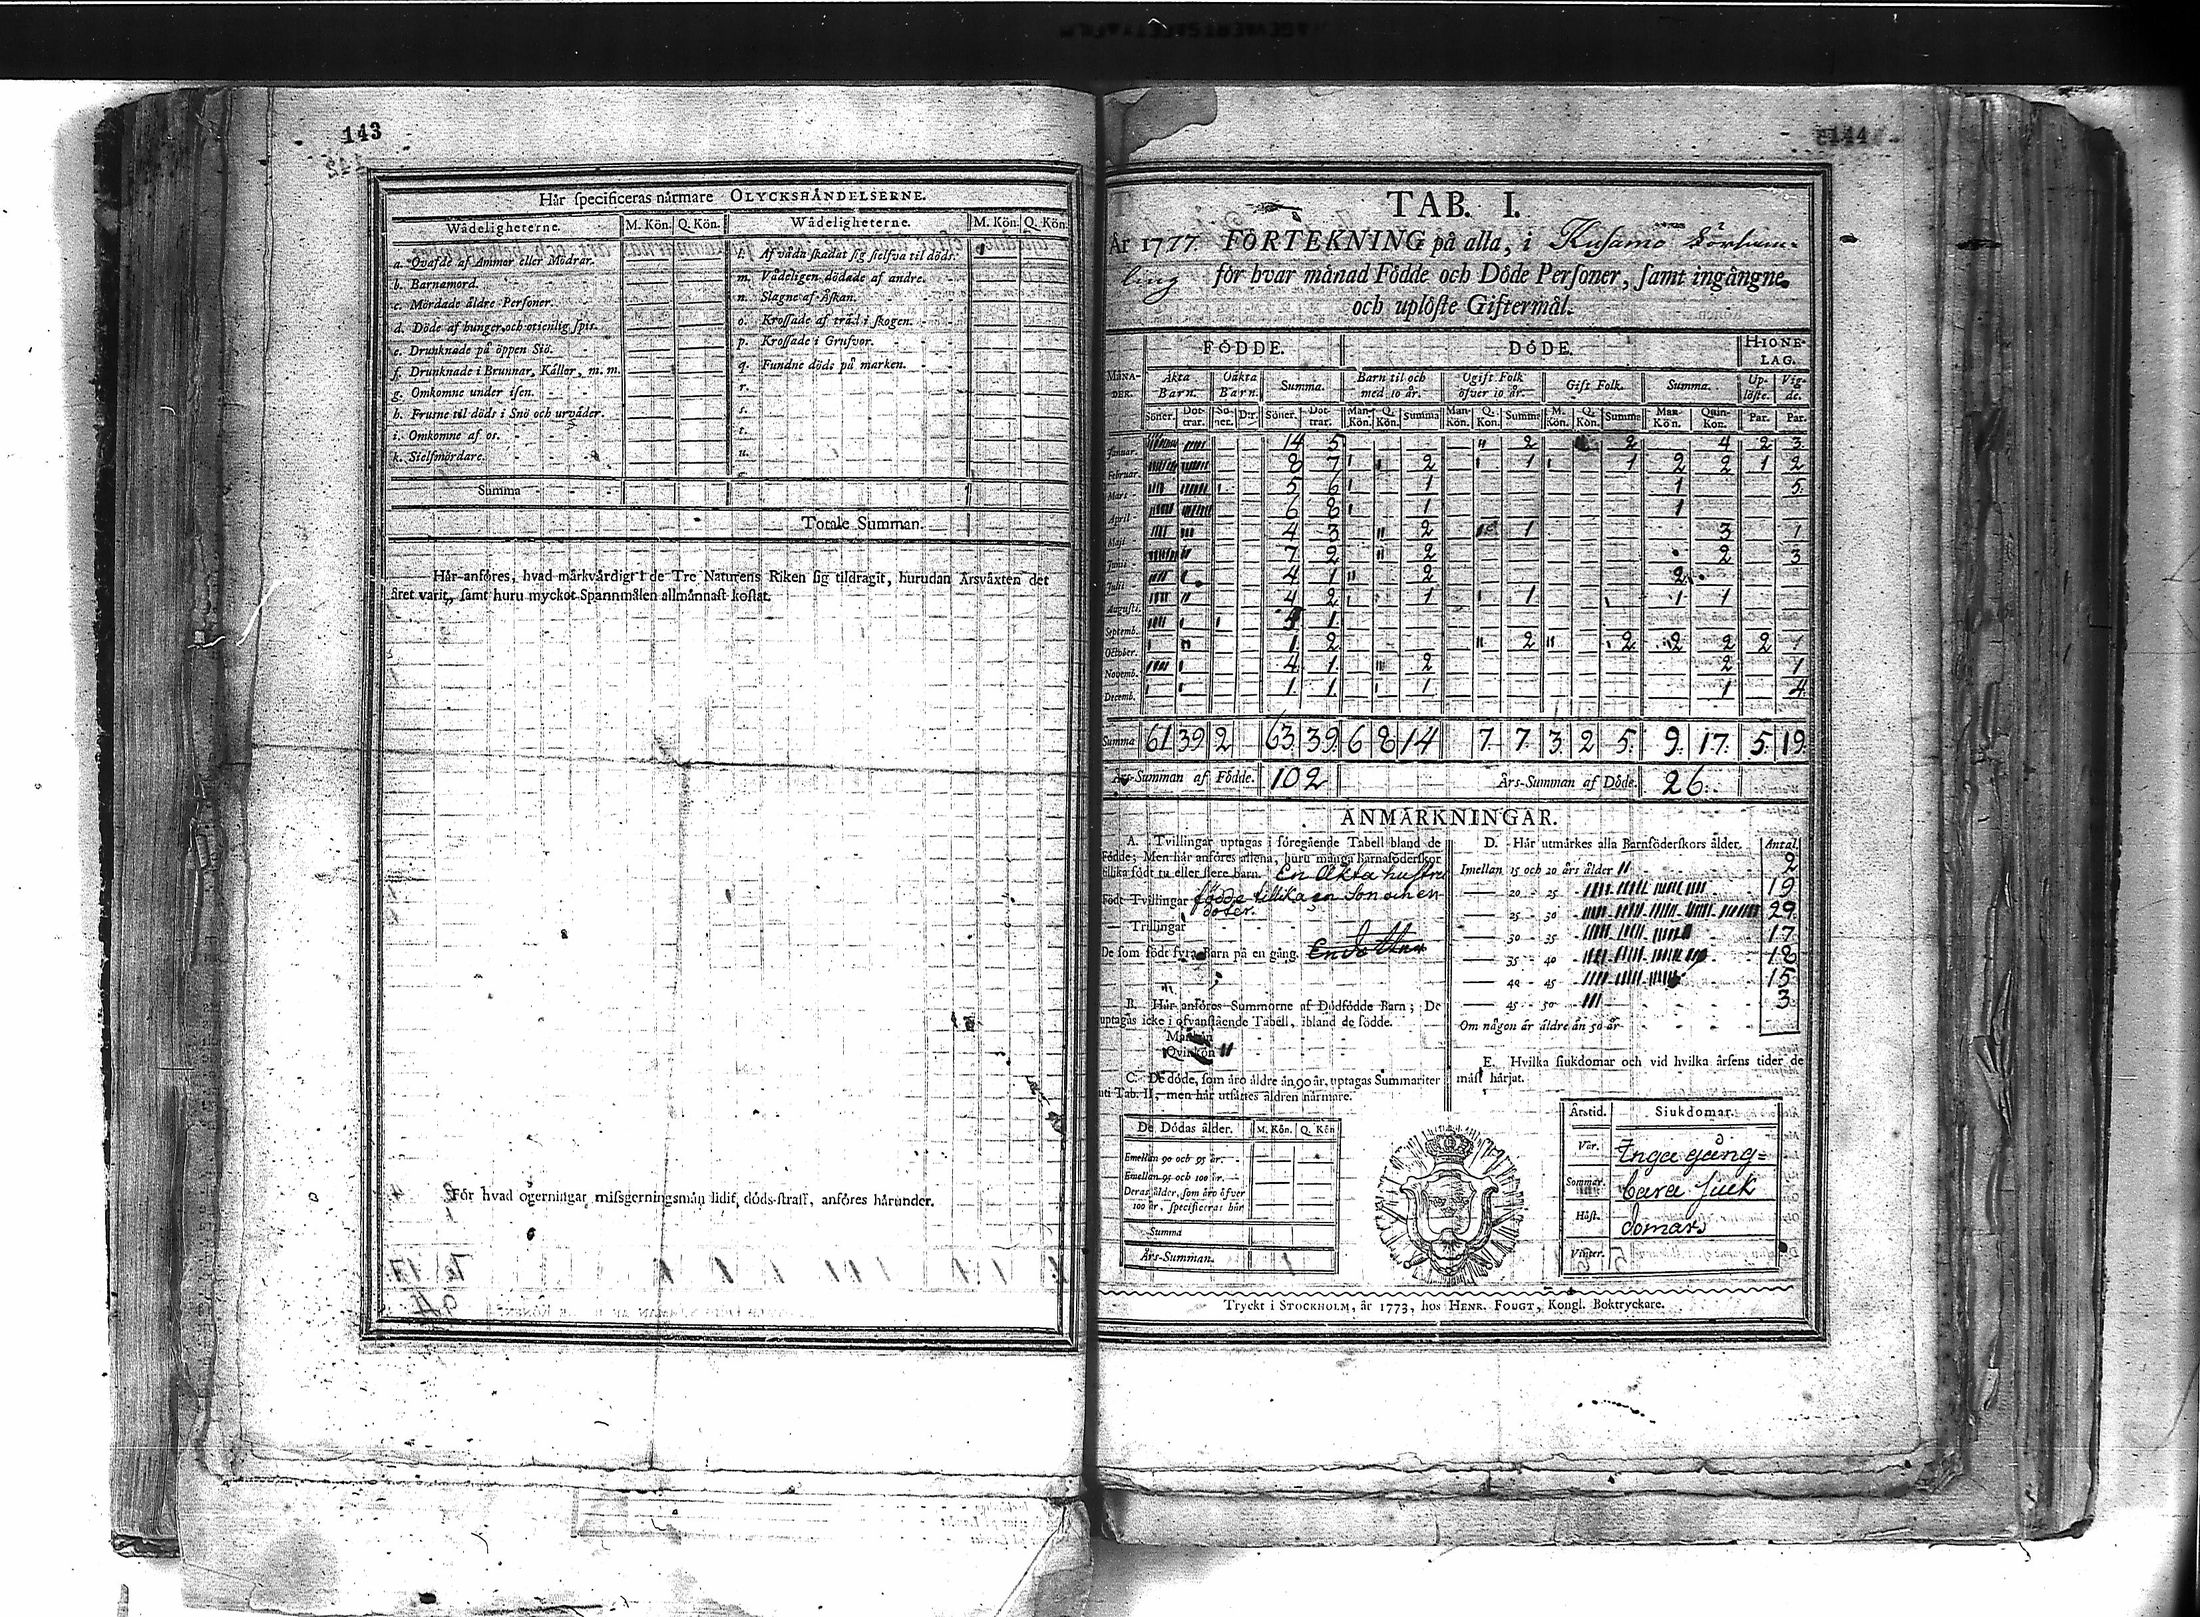 143
Här specificeras närmare OLYCKSHÄNDELSERNE.
Wådeligheterne. M. Kön. Q. Kön. Wådeligheterne. M. Kön. Q. Kön
a. Qvafde af Ammor eller Mödrar. l. Af våda skadat sig sielfva til döds.
b. Barnamord. m. Vådeligen dödade af andre.
c. Mördade äldre Personer. n. Slagne af Åskan.
d. Döde af hunger och otienlig spis. o. Krossade af träd i skogen.
e. Drunknade på öppen Siö. p. Krossade i Grufvor.
f. Drunknade i Brunnar, Källor, m. m. q. Fundne döde på marken.
g. Omkomne under isen. r.
h. Frusne til döds i Snö och urväder. s.
i. Omkomne af os. t.
k. Sielfmördare. u.
Summa
Totale Summan.
Här anföres, hvad märkvärdigt i de Tre Naturens Riken sig tildragit, hurudan Årsväxten det
året varit, samt huru mycket Spannmålen allmännast kostat.
För hvad ogerningar missgerningsmän lidit döds-straff, anföres härunder.
144
TAB. I.
År 1777 FÖRTEKNING på alla, i Kusamo Församling
för hvar månad Födde och Döde Personer, samt ingångne
och uplöste Giftermål.
MÅNADER. FÖDDE. DÖDE. HIONELAG.
Äkta Barn. Oäkta Barn. Summa. Barn til och med 10 år. Ogift Folk öfver 10 år. Gift Folk. Summa. Uplöste. Vigde.
Söner. Dottrar. Söner. D:r Söner. Dottrar. Man-Kön. Q. Kön. Summa Man-Kön. Q. Kön. Summa M. Kön. Q. Kön. Summa Man-Kön. Quin-Kön. Par. Par.
Januar. 14 5 2 2 4 2 3
Februar. 8 7 2 1 1 2 2 1 2
Mars 5 6 1 1 5
April 6 8 1 1
Maji 4 3 2 1 3 1
Junii 7 2 2 2 3
Julii 4 1 2 2
Augusti. 4 2 1 1 1 1
Septemb. 5 1
October. 1 2 2 2 2 2 2 1
Novemb. 4 1 2 2 1
Decemb. 1 1 1 1 4
Summa 61 39 2 63 39 6 8 14 7 7 3 2 5 9 17 5 19
Års-Summan af Födde. 102 Års-Summan af Döde. 26
ANMÄRKNINGAR.
A. Tvillingar uptagas i föregående Tabell bland de
Födde; Men här anföres allena, huru många Barnaföderskor
tillika födt tu eller flere barn. En Äkta hustru
Födt Tvillingar födde tillika en Son och en
doter.
Trillingar
De som födt fyra Barn på en gång.
B. Här anföres Summorne af Dödfödde Barn; De
uptagas icke i ofvanstående Tabell, ibland de födde.
Mankön
Qvinkön II
C. De döde, som äro äldre än 90 år, uptagas Summariter
uti Tab. II, men här utsättes åldren närmare.
De Dödas ålder. M. Kön. Q. Kön
Emellan 90 och 95 år.
Emellan 95 och 100 år.
Deras ålder, som äro öfver
100 år, specificeras här
Summa
Års-Summan.
D. Här utmärkes alla Barnföderskors ålder. Antal.
Imellan 15 och 20 års ålder 2
20 - 25 19
25 - 30 29
30 - 35 17
35 - 40 18
40 - 45 15
45 - 50 3
Om någon är äldre än 50 år
E. Hvilka siukdomar och vid hvilka årsens tider de
mäst härjat.
Årstid. Siukdomar.
Vår. Inga gång=
Sommar. bara siuk
Höst. domar
Vinter.
Tryckt i STOCKHOLM, år 1773, hos HENR. FOUGT, Kongl. Boktryckare.